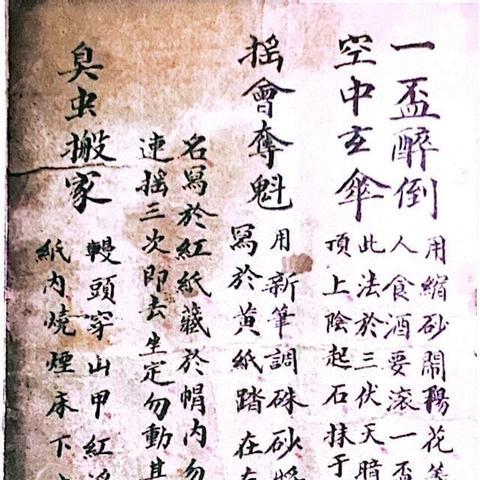 一盃醉倒
用縮砂鬧花
人食酒要滾一盃
空中玄傘
此法於三伏天暗
頂上陰起石抹于
搖會奪魁
用新筆調硃砂將
寫於黃紙踏在
名寫於紅紙藏於帽內勿
連搖三次即去坐定勿動其
臭虫搬家
頭穿山甲紅
紙內燒煙床下